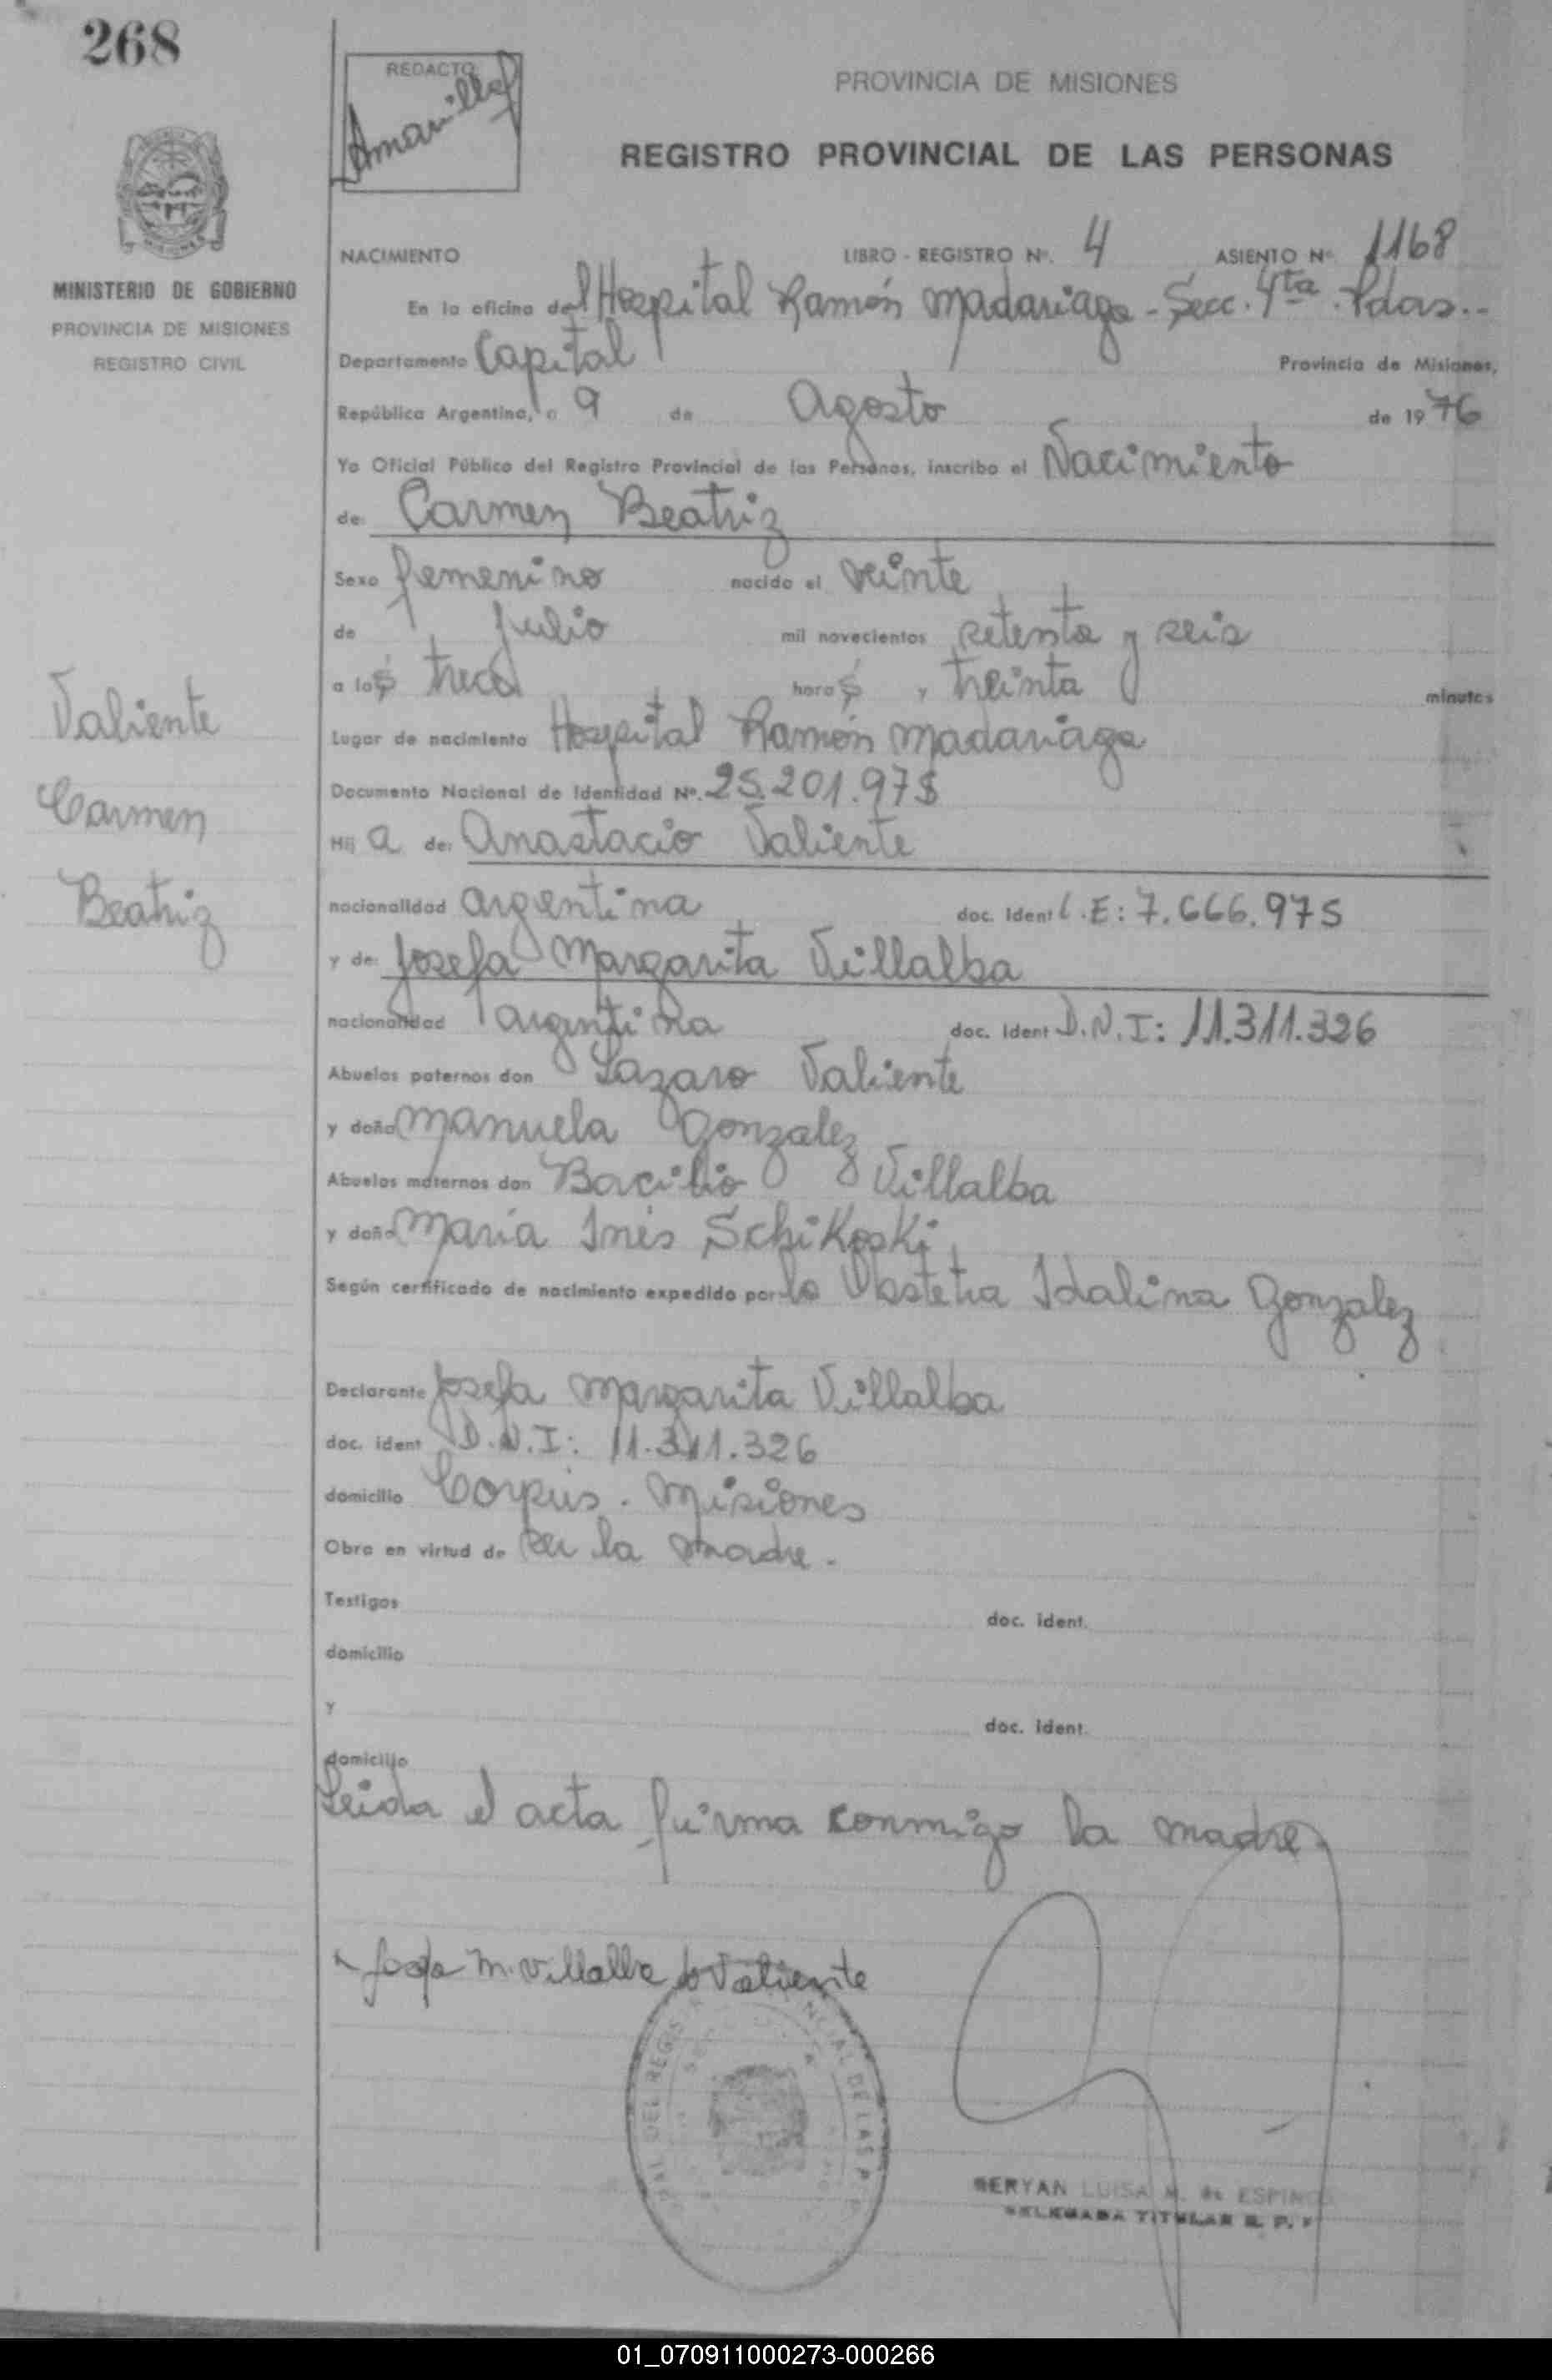 268
REDACTO
Amarilla
PROVINCIA DE MISIONES
REGISTRO PROVINCIAL DE LAS PERSONAS
MINISTERIO DE GOBIERNO
PROVINCIA DE MISIONES
REGISTRO CIVIL
NACIMIENTO LIBRO - REGISTRO Nº. 4 ASIENTO Nº 1168
En la oficina del Hospital Ramón Madariaga - Secc. 4ta. Pdas.-
Departamento Capital Provincia de Misiones,
República Argentina, a 9 de Agosto de 1976
Yo Oficial Público del Registro Provincial de las Personas, inscribo el Nacimiento
de: Carmen Beatriz
Sexo femenino nacido el veinte
de Julio mil novecientos setenta y seis
a las trece horas y treinta minutos
Lugar de nacimiento Hospital Ramón Madariaga
Documento Nacional de Identidad Nº. 25.201.97
Hij a de: Anastacio Valiente
nacionalidad argentina doc. Ident L.E: 7.666.975
y de: Josefa Margarita Villalba
nacionalidad argentina doc. Ident D.N.I: 11.311.326
Abuelos paternos don Lazaro Valiente
y doña Manuela Gonzalez
Abuelos maternos don Bacilio Villalba
y doña Maria Inés Schikoski
Según certificado de nacimiento expedido por la Obstetra Idalina Gonzalez
Declarante Josefa Margarita Villalba
doc. ident D.N.I: 11.311.326
domicilio Corpus. Misiones
Obra en virtud de ser la madre.
Testigos doc. ident.
domicilio
y doc. ident.
domicilio
Leida el acta firma conmigo la madre
Valiente
Carmen
Beatriz
Josefa M. Villalba de Valiente
DEL REGIS NCIAL DE LAS P
SERYAN LUISA M. de ESPINO
DELEGADA TITULAR R. P. P
01_070911000273-000266